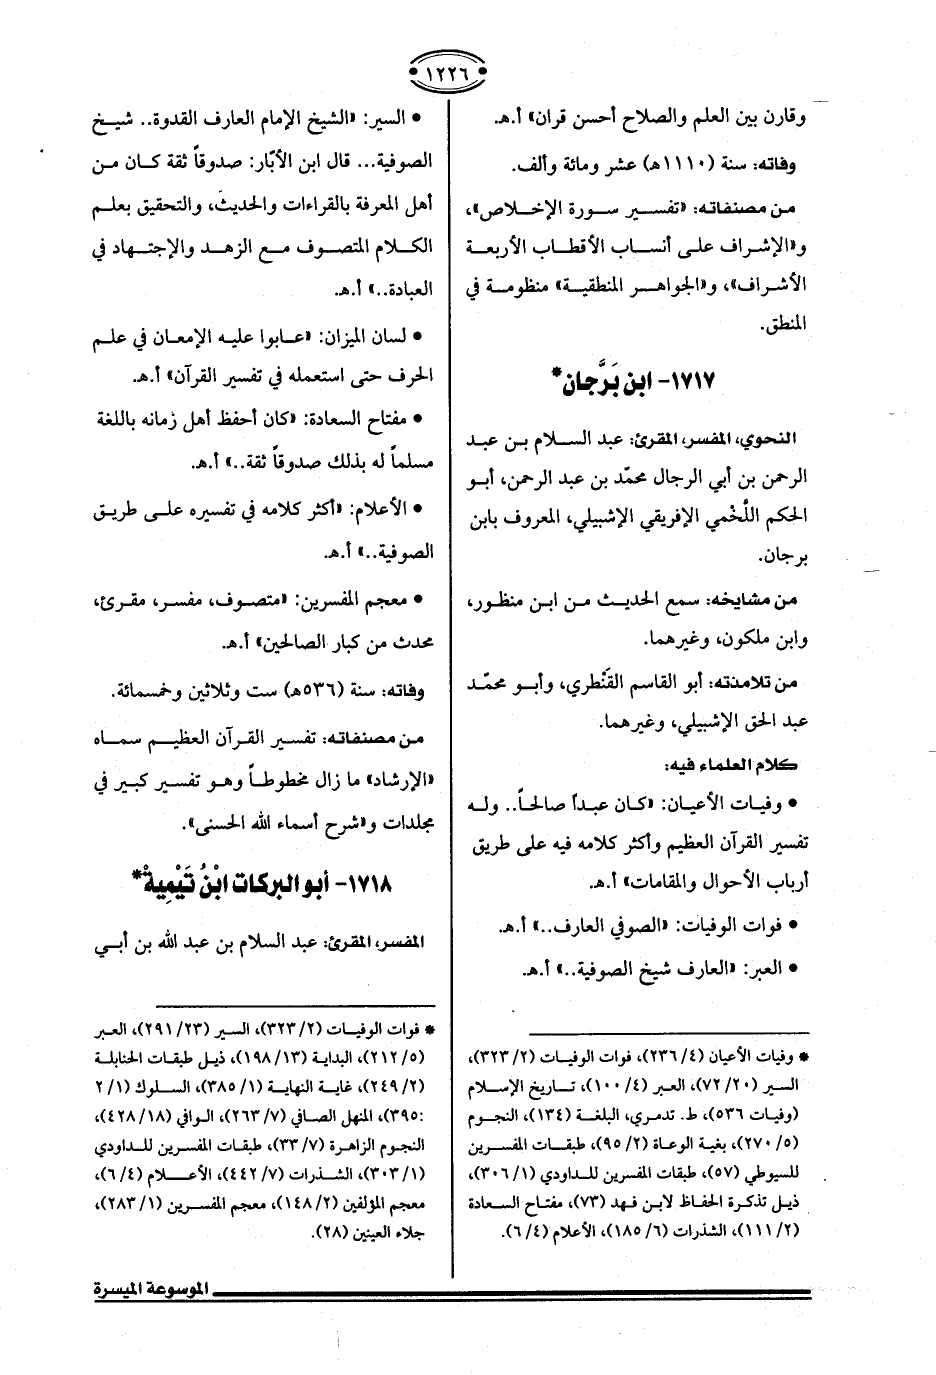 ١٢٢٦
وقارن بين العلم والصلاح أحسن قران» أ.هـ.
وفاته: سنة (١١١٠هـ) عشر ومائة وألف.
من مصنفاته: «تفسير سورة الإخلاص»،
و«الإشراف على أنساب الأقطاب الأربعة
الأشراف»، و«الجواهر المنطقية» منظومة في
المنطق.
١٧١٧- ابن بَرَّجان*
النحوي، المفسر، المقرئ: عبد السلام بن عبد
الرحمن بن أبي الرجال محمّد بن عبد الرحمن، أبو
الحكم اللَّخمي الإفريقي الإشبيلي، المعروف بابن
برجان.
من مشايخه: سمع الحديث من ابن منظور،
وابن ملكون، وغيرهما.
من تلامذته: أبو القاسم القَنْطري، وأبو محمّد
عبد الحق الإشبيلي، وغيرهما.
كلام العلماء فيه:
• وفيات الأعيان: «كان عبداً صالحاً.. وله
تفسير القرآن العظيم وأكثر كلامه فيه على طريق
أرباب الأحوال والمقامات» أ.هـ.
• فوات الوفيات: «الصوفي العارف..» أ.هـ.
• العبر: «العارف شيخ الصوفية..» أ.هـ.
* وفيات الأعيان (٤/ ٢٣٦)، فوات الوفيات (٢/ ٣٢٣)،
السير (٢٠/ ٧٢)، العبر (٤/ ١٠٠)، تاريخ الإسلام
(وفيات ٥٣٦)، ط. تدمري، البلغة (١٣٤)، النجوم
(٥/ ٢٧٠)، بغية الوعاة (٢/ ٩٥)، طبقات المفسرين
للسيوطي (٥٧)، طبقات المفسرين للداودي (١/ ٣٠٦)،
ذيل تذكرة الحفاظ لابن فهد (٧٣)، مفتاح السعادة
(٢/ ١١١)، الشذرات (٦/ ١٨٥)، الأعلام (٤/ ٦).
• السير: «الشيخ الإمام العارف القدوة.. شيخ
الصوفية... قال ابن الأبّار: صدوقاً ثقة كان من
أهل المعرفة بالقراءات والحديث، والتحقيق بعلم
الكلام المتصوف مع الزهد والإجتهاد في
العبادة..» أ.هـ.
• لسان الميزان: «عابوا عليه الإمعان في علم
الحرف حتى استعمله في تفسير القرآن» أ.هـ.
• مفتاح السعادة: «كان أحفظ أهل زمانه باللغة
مسلماً له بذلك صدوقاً ثقة..» أ.هـ.
• الأعلام: «أكثر كلامه في تفسيره على طريق
الصوفية..» أ.هـ.
• معجم المفسرين: «متصوف، مفسر، مقرئ،
محدث من كبار الصالحين» أ.هـ.
وفاته: سنة (٥٣٦هـ) ست وثلاثين وخمسمائة.
من مصنفاته: تفسير القرآن العظيم سماه
«الإرشاد» ما زال مخطوطاً وهو تفسير كبير في
مجلدات و«شرح أسماء الله الحسنى».
١٧١٨- أبو البركات ابْنُ تَيْمِيةْ*
المفسر، المقرئ: عبد السلام بن عبد الله بن أبي
* فوات الوفيات (٢/ ٣٢٣)، السير (٢٣/ ٢٩١)، العبر
(٥/ ٢١٢)، البداية (١٣/ ١٩٨)، ذيل طبقات الحنابلة
(٢/ ٢٤٩)، غاية النهاية (١/ ٣٨٥)، السلوك (١/ ٢
:٣٩٥)، المنهل الصافي (٧/ ٢٦٣)، الوافي (١٨/ ٤٢٨)،
النجوم الزاهرة (٧/ ٣٣)، طبقات المفسرين للداودي
(١/ ٣٠٣)، الشذرات (٧/ ٤٤٢)، الأعلام (٤/ ٦)،
معجم المؤلفين (٢/ ١٤٨)، معجم المفسرين (١/ ٢٨٣)،
جلاء العينين (٢٨).
الموسوعة الميسرة